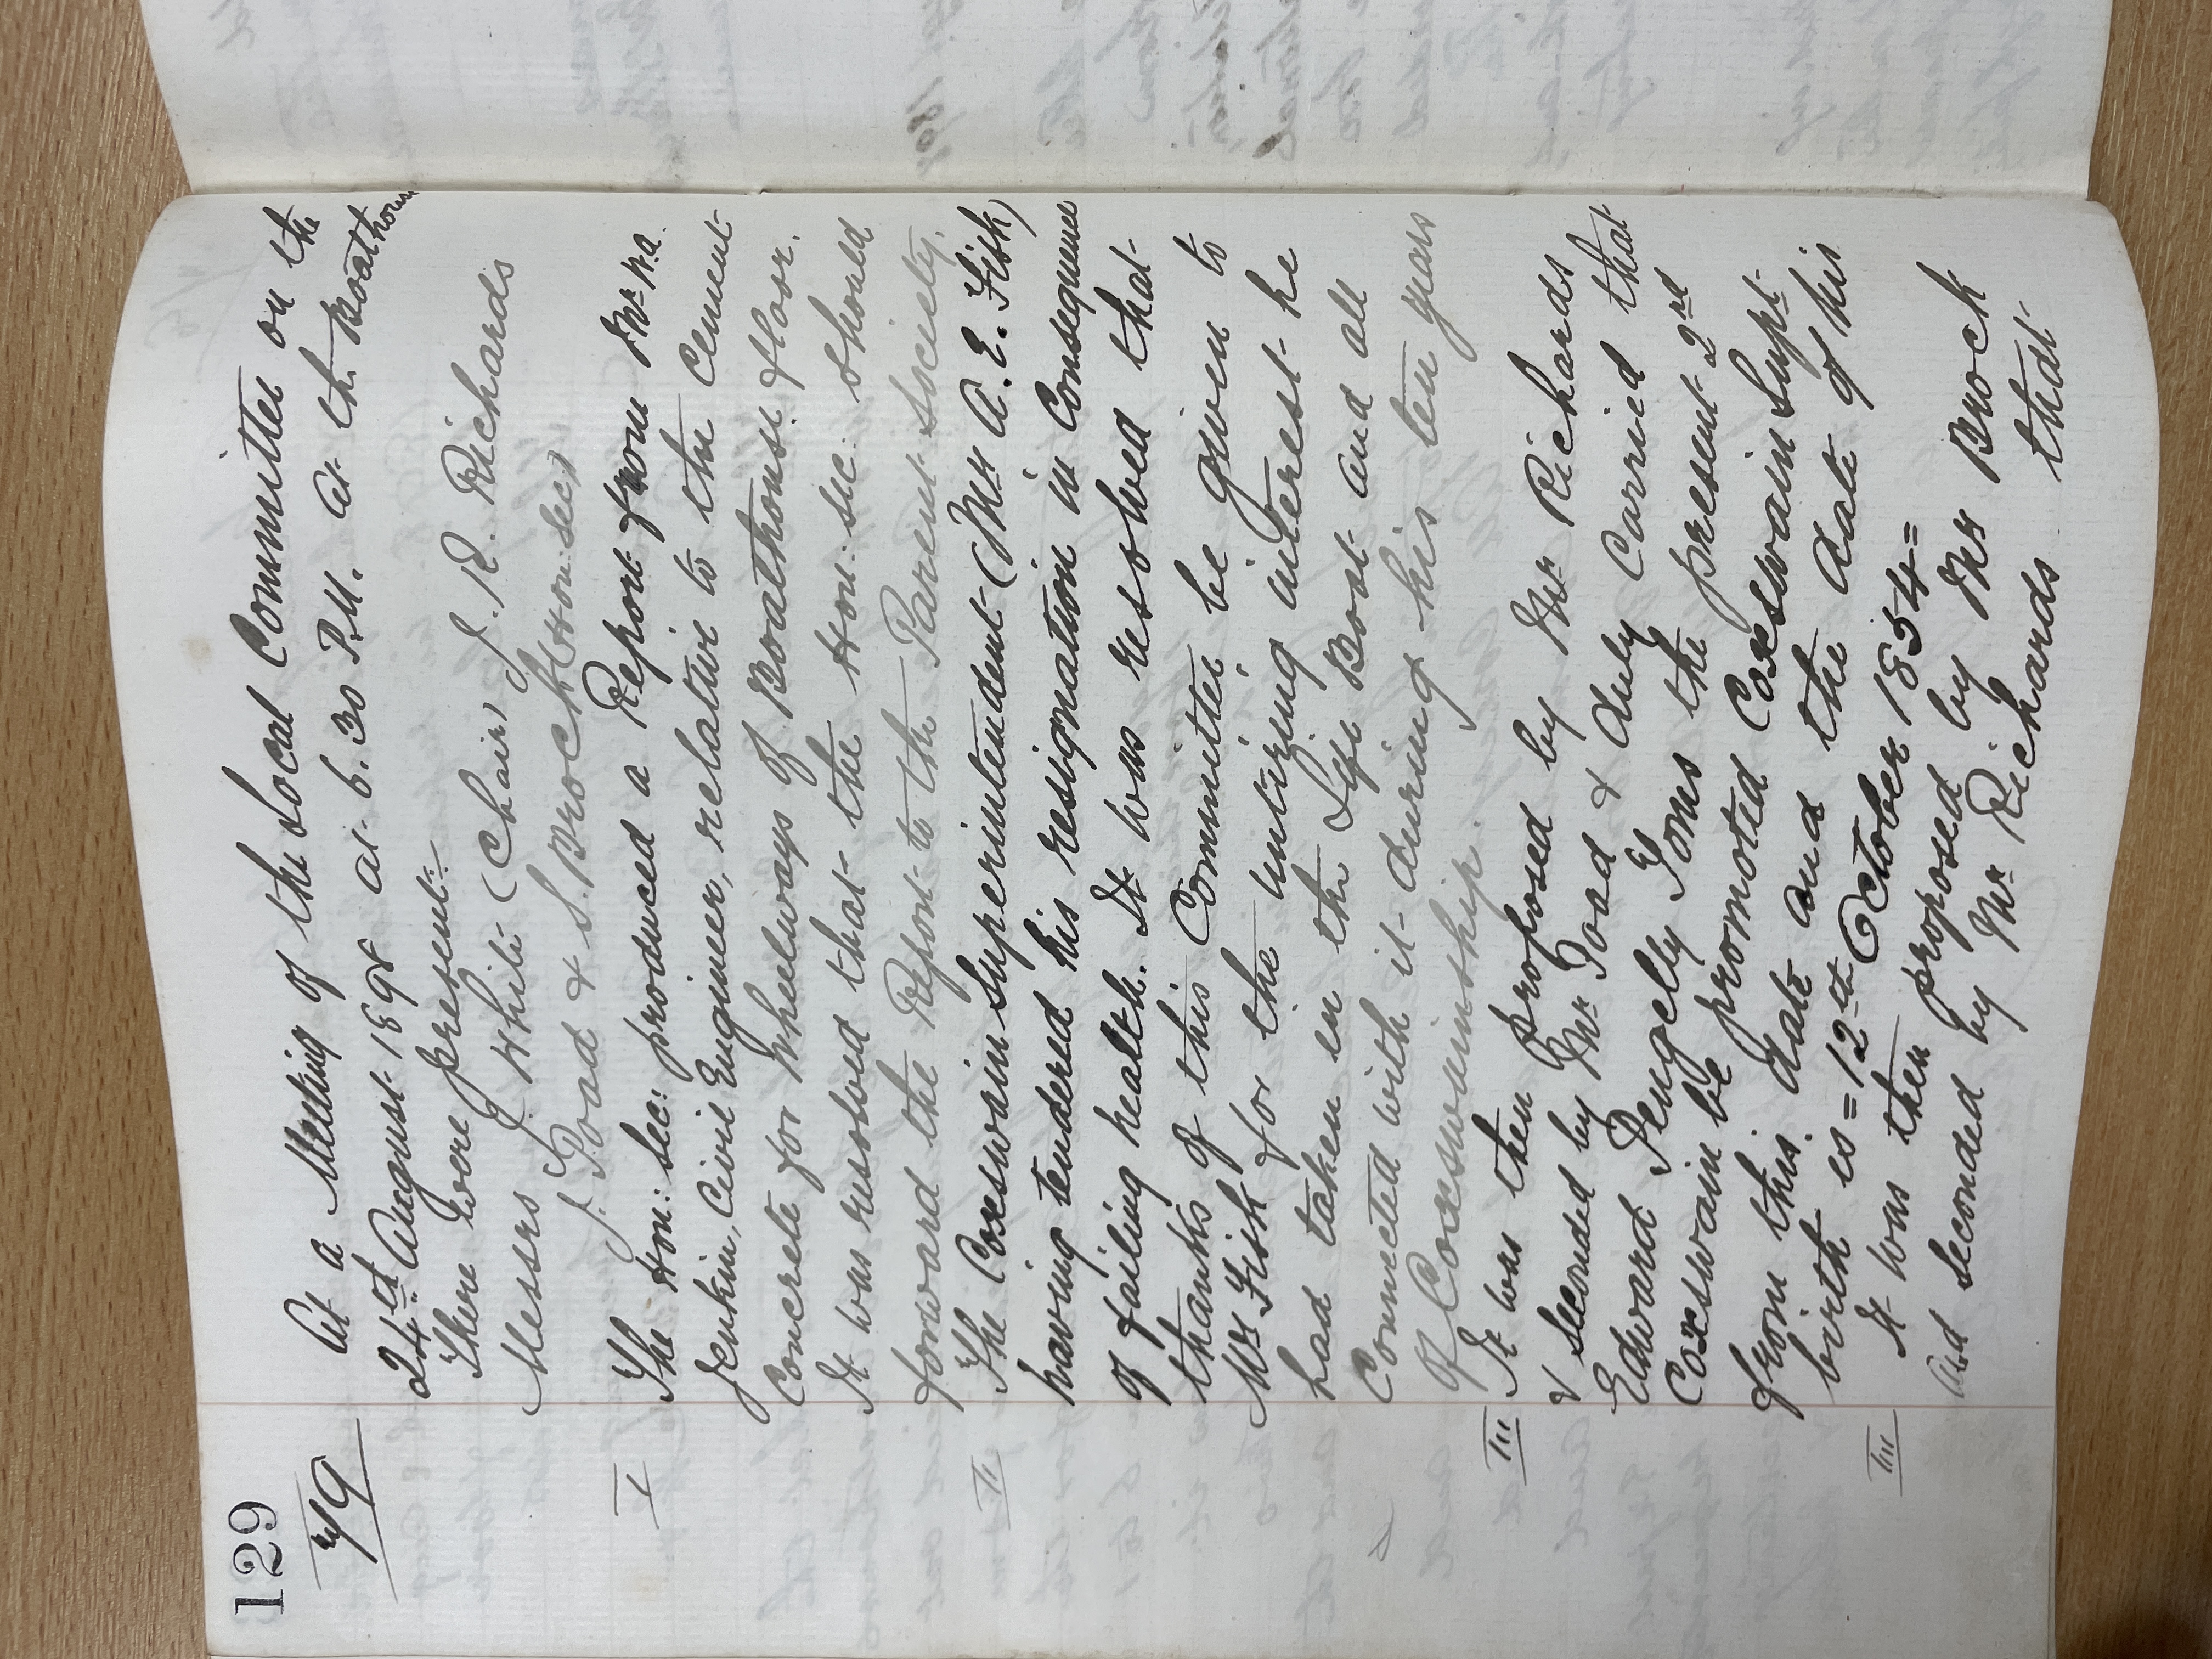 129
79
At a Meeting of the Local Committee on the
24th August 1898 at 6.30 P.M. at the Boathouse
There were present:-
Messrs J. White (Chair) J. R. Richards
J. Toad & S. Brock (Hon: Sec)
I The Hon: Sec: produced a Report from Mr W.A.
Jenkin, Civil Engineer, relative to the Cement
Concrete for Wheelways of Boathouse floor.
It was resolved that the Hon: Sec: should
forward the Report to the Parent Society.
II The Coxswain Superintendent (Mr A. E. Fish)
having tendered his resignation in Consequence
of failing health. It was resolved that
thanks of this Committee be given to
Mr Fish for the untiring interest he
had taken in the Life Boat and all
Connected with it during his ten years
of Coxswainship.
III It was then proposed by Mr Richards
& seconded by Mr Toad & duly Carried that
Edward Pengelly Toms the present 2nd
Coxswain be promoted Coxswain Supt
from this date and the date of his
birth is = 12th October 1854 =
III It was then proposed by Mr Brock
and seconded by Mr Richards that